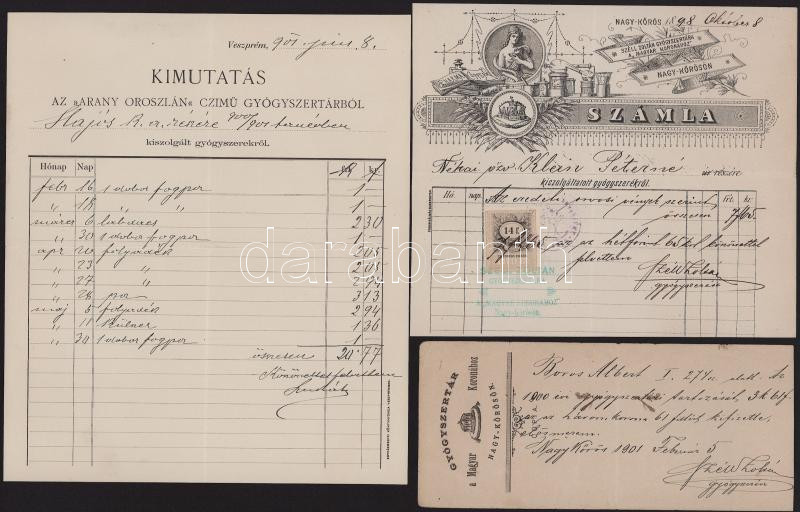 Veszprém, 901 junius 8.
KIMUTATÁS
AZ »ARANY OROSZLÁN« CZIMŰ GYÓGYSZERTÁRBÓL
Hajós részére 900/901 tanévben
kiszolgált gyógyszerekről.
Hónap Nap kr.
febr 16 1 doboz fogpor 1 —
" 18 " " 1 —
márcz 6 2 30
" 30 1 doboz fogpor 1 —
apr 20 folyadék 2 05
" 23 " 2 05
" 27 " 2 94
" 28 por 3 13
máj 5 folyadék 2 94
" 11 1 36
" 30 1 doboz fogpor 1 —
összesen 20.77
Köszönettel felvettem
NAGY-KŐRÖS 1898 Október 8
SZÉLL ZOLTÁN GYÓGYSZERTÁRA
A „MAGYAR KORONÁHOZ"
NAGY-KŐRÖSÖN
SZÁMLA
Néhai özv Klein Péterné úr részére
kiszolgáltatott gyógyszerekről.
Hó. nap. frt. kr.
Az eredeti orvosi vények szerint
összesen 7/65
14 f.
az hétforint 65 krt köszönettel
felvettem
Széll Zoltán
gyógyszerész
„A MAGYAR KORONÁHOZ"
Nagy-Kőrösön
GYÓGYSZERTÁR
a Magyar Koronához
NAGY-KŐRÖSÖN.
Boros Albert I. 274 sz. alatti
1900 évi gyógyszertári tartozását, 3 k 61 f
az három korona 61 fillért kifizette,
elismerem.
Nagy Kőrös 1901 Február 5
Széll Zoltán
gyógyszerész
darabanth.com